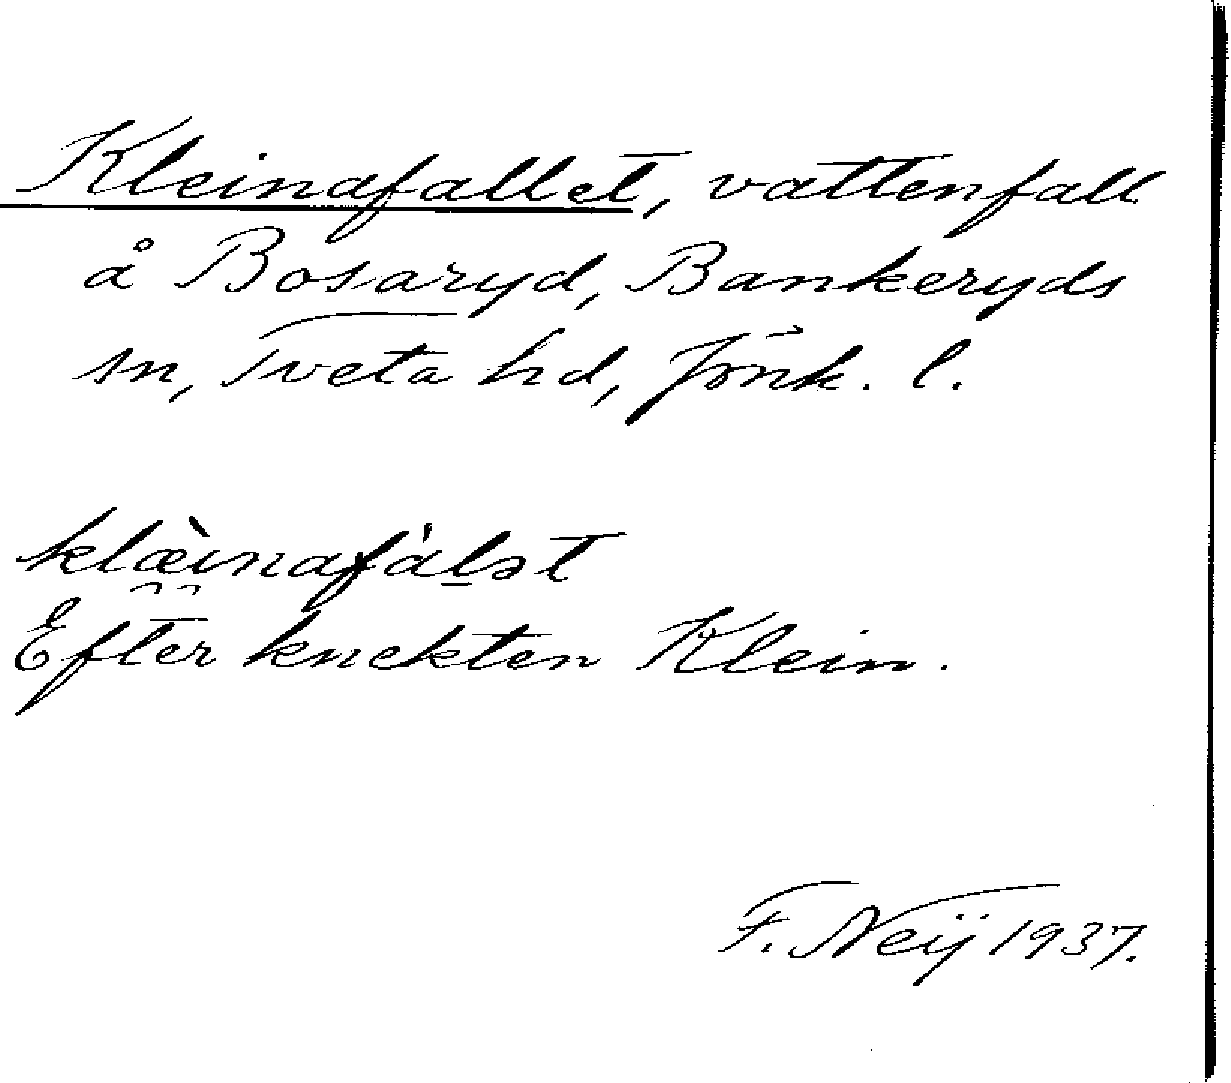 Kleinafallet, vattenfall
å Bosaryd, Bankeryds
sn, Tveta hd, Jönk. l.
klæ̀inafáḷət
Efter knekten Klein.
F. Neij 1937.